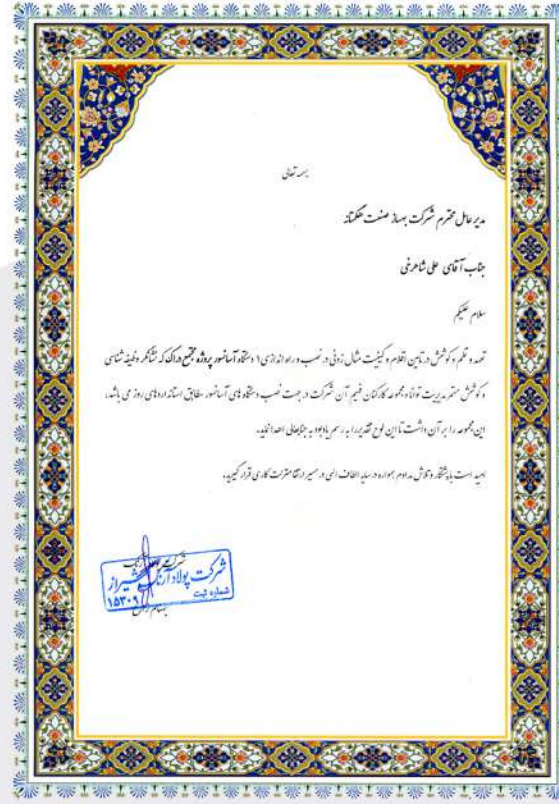 بسمه تعالی
مدیر عامل محترم شرکت بهساز صنعت هگمتانه
جناب آقای علی شاهرخی
سلام علیکم
تعهد و نظم و کوشش در تامین اقلام و کیفیت مثال زدنی در نصب و راه اندازی ۱ دستگاه آسانسور پروژه مجتمع دراک که نشانگر وظیفه شناسی
و کوشش مستمر مدیریت توانا و مجموعه کارکنان فهیم آن شرکت در جهت نصب دستگاه های آسانسور مطابق استانداردهای روز می باشد،
این مجموعه را بر آن داشت تا این لوح تقدیر را به رسم یادبود به جنابعالی اهدا نماید.
امید است با پشتکار و تلاش مداوم همواره در سایه الطاف الهی در مسیر ارتقا منزلت کاری قرار گیرید.
شرکت پولاد آرنگ شیراز
شماره ثبت
۱۵۳۰۹